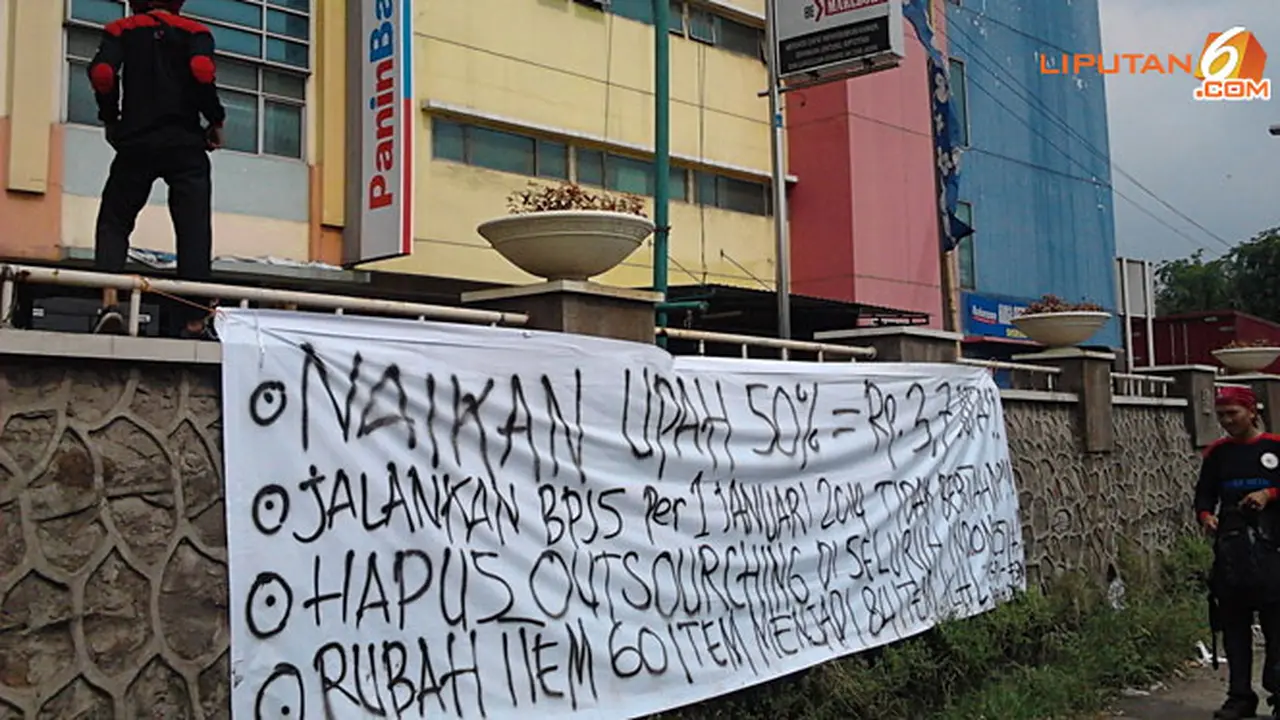 LIPUTAN6
.COM
PaninBa
NAIKAN UPAH 50% = Rp. 3,7
JALANKAN BPJS Per 1 JANUARI 2014 TIDAK BERTAHAP
HAPUS OUTSOURCHING DI SELURUH INDONESIA
RUBAH ITEM 60 ITEM MENJADI 84 ITEM KHL